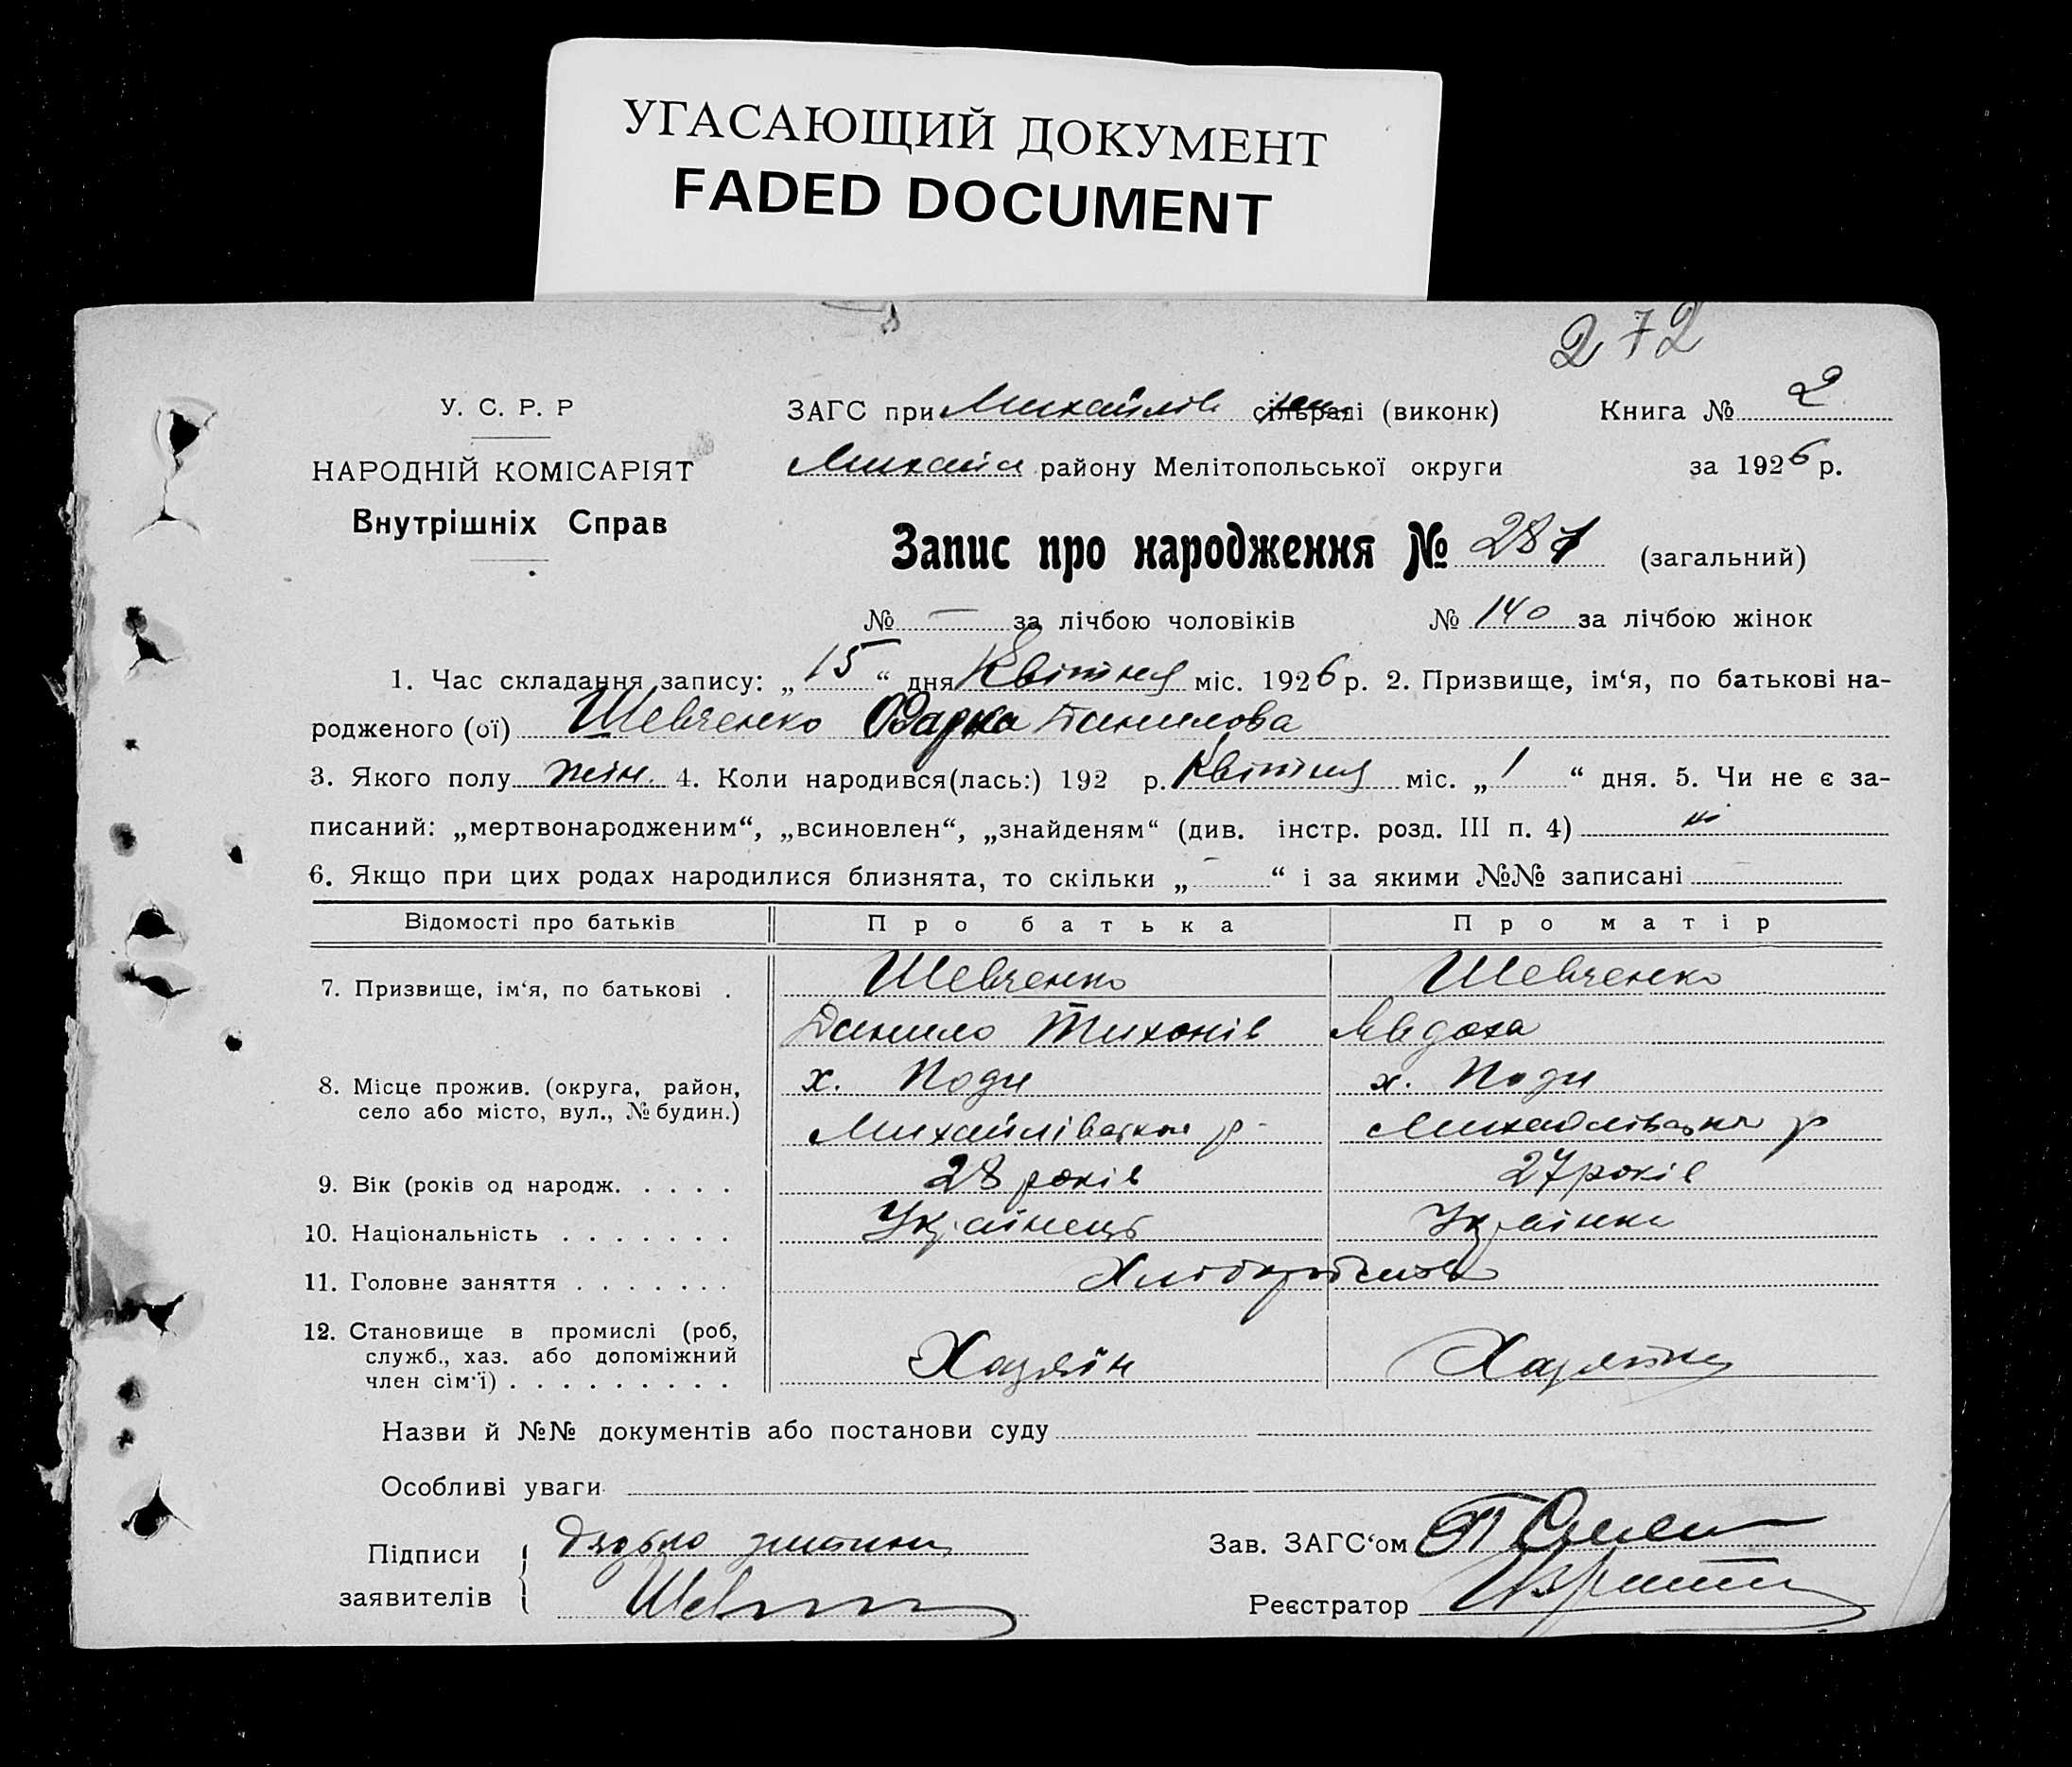 УГАСАЮЩИЙ ДОКУМЕНТ
FADED DOCUMENT
272
У. С. Р. Р
ЗАГС при Михайлів сільраді (виконк)
Книга № 2
НАРОДНІЙ КОМІСАРІЯТ
Михайл району Мелітопольської округи
за 1926 р.
Внутрішніх Справ
Запис про народження № 287 (загальний)
№ — за лічбою чоловіків № 140 за лічбою жінок
1. Час складання запису: „15“ дня Квітня міс. 1926 р. 2. Призвище, ім‘я, по батькові на-
родженого (ої) Шевченко Одарка Данилова
3. Якого полу жін. 4. Коли народився(лась:) 192 р. Квітня міс. „1“ дня. 5. Чи не є за-
писаний: „мертвонародженим“, „всиновлен“, „знайденям“ (див. інстр. розд. III п. 4) ні
6. Якщо при цих родах народилися близнята, то скільки „—“ і за якими №№ записані —
Відомості про батьків Про батька Про матір
7. Призвище, ім‘я, по батькові . Шевченко Шевченко
Данило Тихонів Явдоха
8. Місце прожив. (округа, район, х. Поди х. Поди
село або місто, вул., № будин.)
Михайлівськ р. Михайлівськ р
9. Вік (років од народж. . . . . 28 років 27 років
10. Національність . . . . . . . Українець Українка
11. Головне заняття . . . . . . .
12. Становище в промислі (роб,
служб., хаз. або допоміжний
член сім‘ї) . . . . . . . . . Хазяїн Хазяйка
Назви й №№ документів або постанови суду
Особливі уваги
Підписи
заявителів
Зав. ЗАГС‘ом
Реєстратор